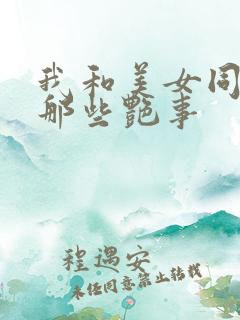 我和美女同
那些艳事
程遇安
未经同意禁止转载